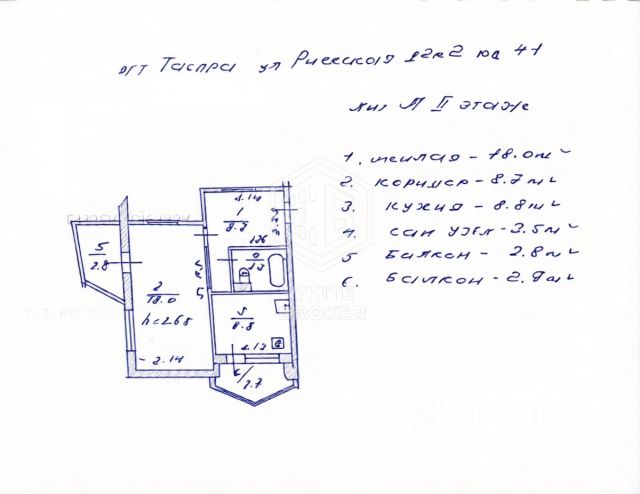 пгт Таспра ул Рисская 12к2 кв 41
лит А II этаже
1. жилая - 18.0 м²
2. коридор - 8.7 м²
3. кухня - 8.8 м²
4. сан узл - 3.5 м²
5 Балкон - 2.8 м²
6. Балкон - 2.9 м²
4.14
1
8.7
1.76
5
2.8
2
18.0
h=2.65
3.14
3
8.8
4.13
6
2.7
WHITE
BROKER